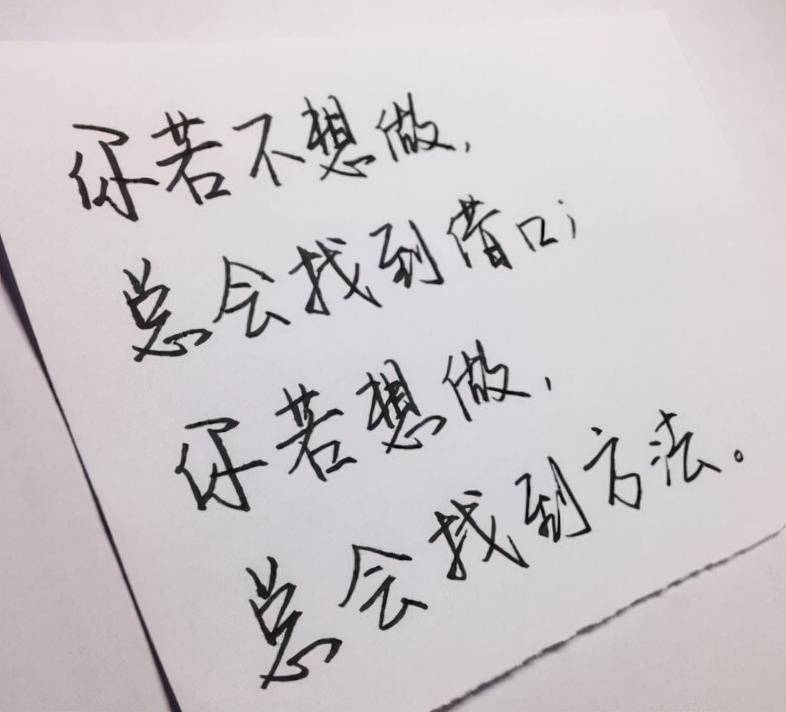 你若不想做,
总会找到借口;
你若想做,
总会找到方法。